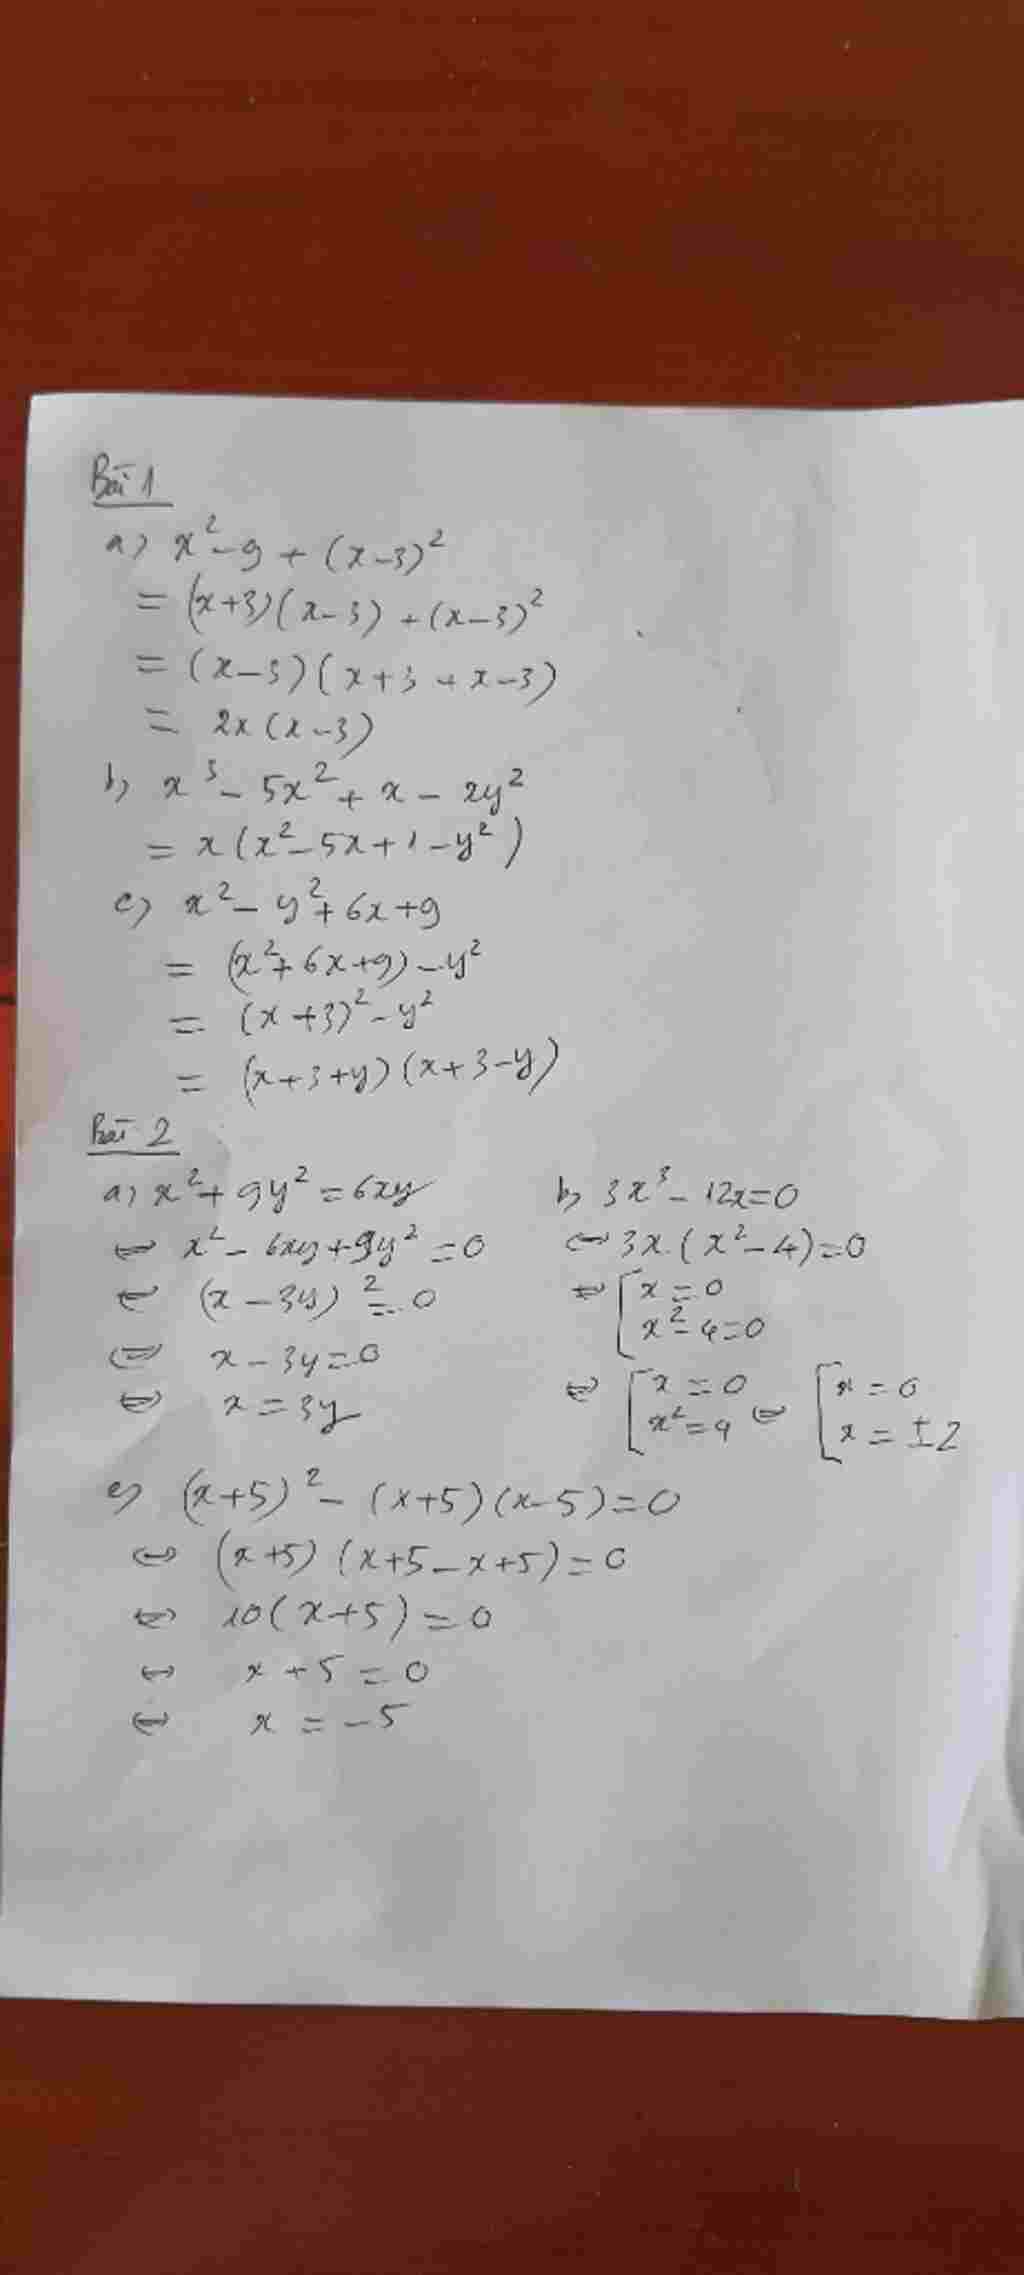 Bài 1
a) x² - 9 + (x-3)²
= (x+3)(x-3) + (x-3)²
= (x-3)(x+3+x-3)
= 2x(x-3)
b) x³ - 5x² + x - 2y²
= x(x² - 5x + 1 - y²)
c) x² - y² + 6x + 9
= (x² + 6x + 9) - y²
= (x+3)² - y²
= (x+3+y)(x+3-y)
Bài 2
a) x² + 9y² = 6xy
⇔ x² - 6xy + 9y² = 0
⇔ (x - 3y)² = 0
⇔ x - 3y = 0
⇔ x = 3y
b) 3x³ - 12x = 0
⇔ 3x.(x² - 4) = 0
⇔ [ x = 0
x² - 4 = 0
⇔ [ x = 0 ⇔ [ x = 0
x² = 4 x = ±2
c) (x+5)² - (x+5)(x-5) = 0
⇔ (x+5)(x+5-x+5) = 0
⇔ 10(x+5) = 0
⇔ x + 5 = 0
⇔ x = -5